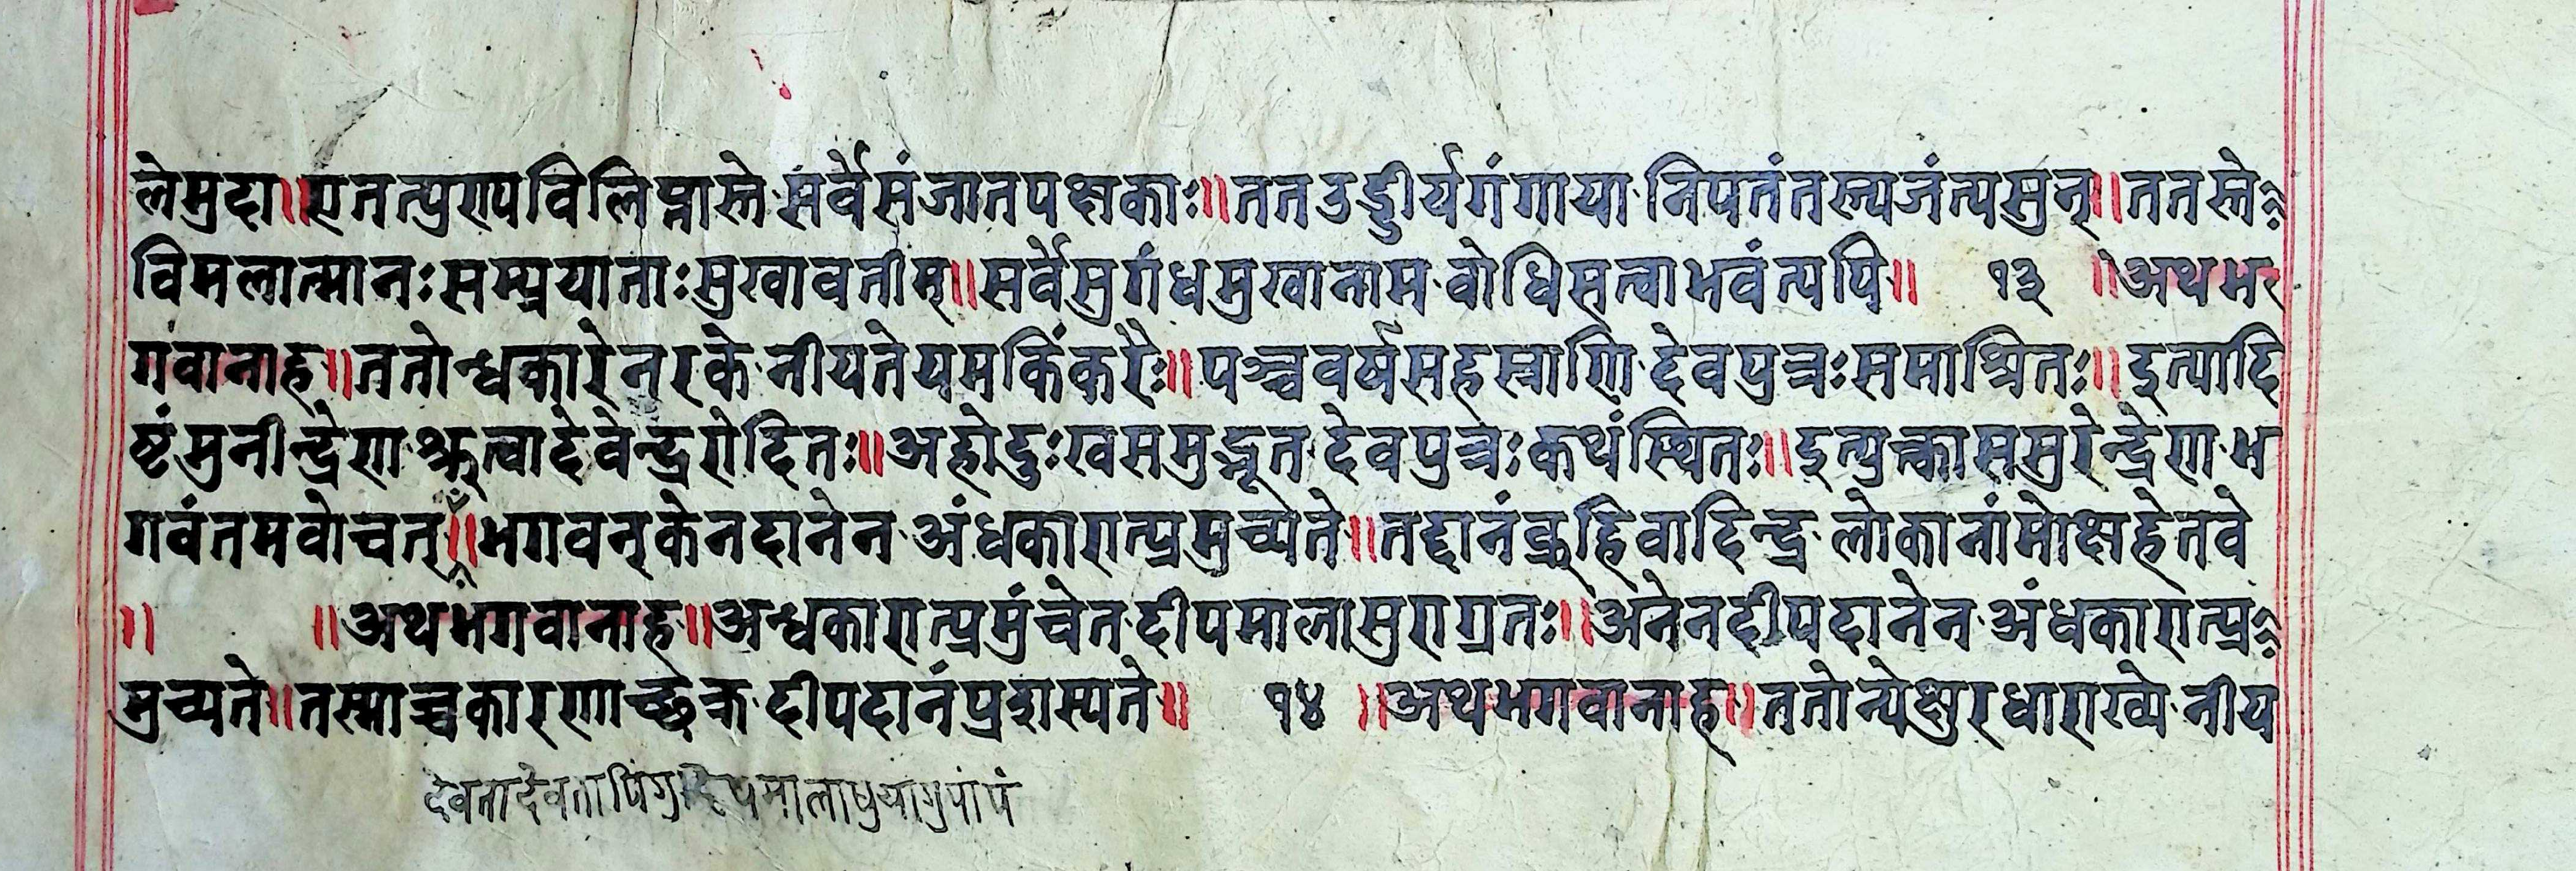 लेमुदा॥एतत्पुरापविलिप्तास्ते सर्वेसंजातपक्षकाः॥तत उड्डीर्यगंगाया निपतंतस्त्यजंत्यसुन्॥ततस्ते
विमलात्मानःसम्प्रयाताःसुखावतीम्॥सर्वेसुगंधमुखानाम वोधिसत्वाभवंत्यपि॥ १३ ॥अथभ
गवानाह॥ततोन्धकारेनरके नीयतेयमकिंकरैः॥पञ्चवर्षसहस्राणि देवपुत्रःसमाश्रितः॥इत्यादि
ष्टंमुनीन्द्रेण श्रुत्वादेवेन्द्ररोदितः॥अहोदुःखसमुद्भूत देवपुत्रःकथंस्थितः॥इत्युक्त्वाससुरेन्द्रेण भ
गवंतमवोचत्॥भगवन्केनदानेन अंधकारात्प्रमुच्यते॥तद्दानंब्रुहिवादिन्द्र लोकानांमोक्षहेतवे
॥ ॥अथभगवानाह॥अन्धकारात्प्रमुंचेत दीपमालासुराग्रतः॥अनेनदीपदानेन अंधकारात्प्र
मुच्यते॥तस्माच्चकारणाच्छक्र दीपदानंप्रदास्यते॥ १४ ॥अथभगवानाह॥ततोन्येक्षुरधाराख्ये नीय